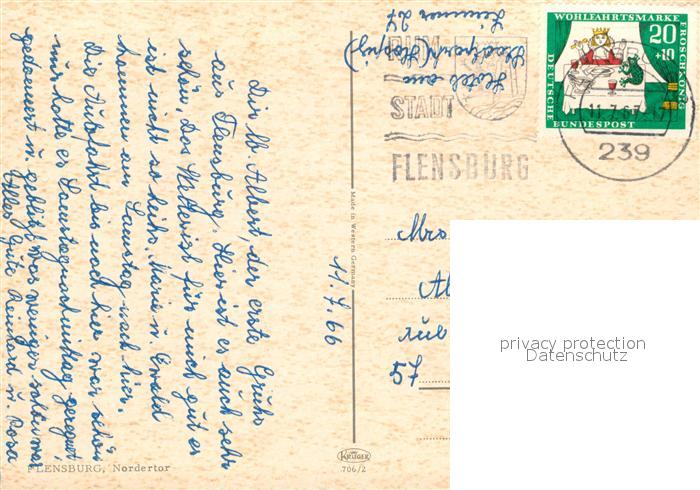 Dir lb. Albert, der erste Gruß
aus Flensburg. Hier ist es auch sehr
schön. Das ist für mich gut es
ist nicht so heiß. Marie u. Ewald
kommen am Samstag nach hier.
Die Autofahrt bis nach hier war schön
nur hatte es Samstagnachmittag geregnet,
gedonnert u. geblitzt war weniger schön war
Alles Gute Reinhard u. Rosa
FLENSBURG, Nordertor
Hotel am
Stadtpark
Zimmer 27
RUM
STADT
FLENSBURG
WOHLFAHRTSMARKE
FROSCHKÖNIG
DEUTSCHE
BUNDESPOST
20
+10
11.7.67
239
Made in Western Germany
11.7.66
Mrs
Al
aus
57
KRÜGER
706/2
privacy protection
Datenschutz